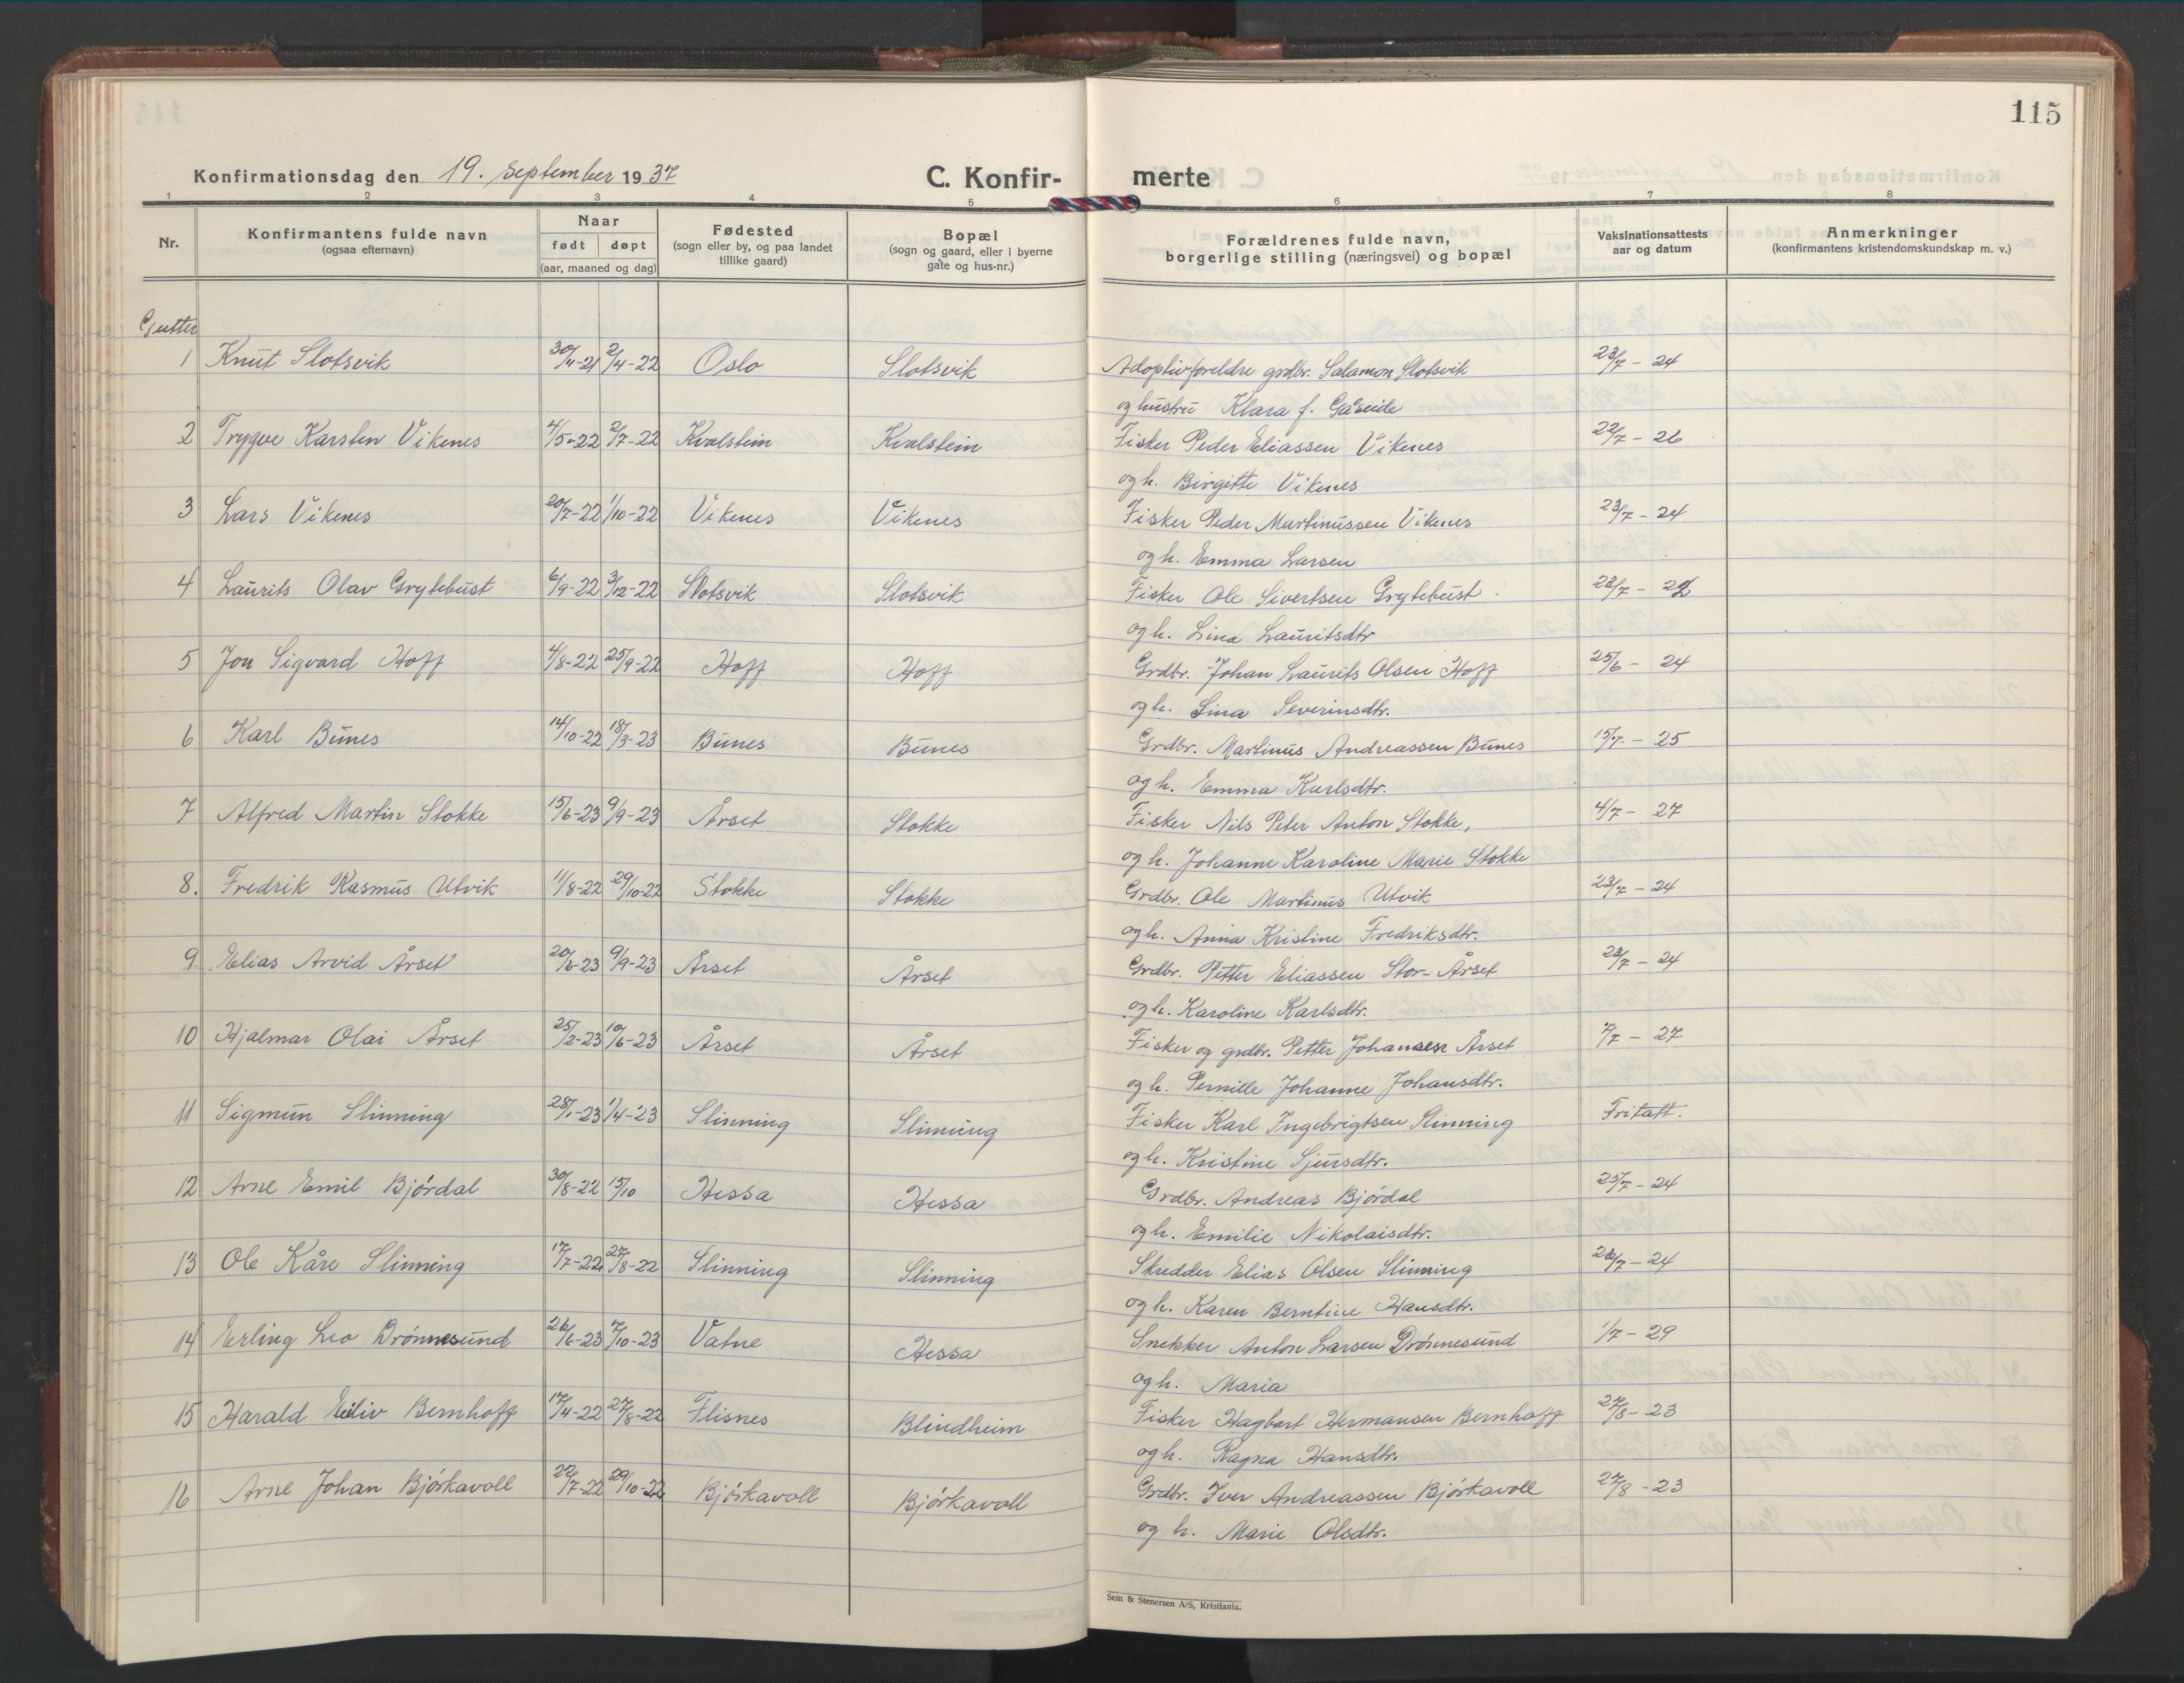 115
Konfirmationsdag den 19. september 1937
C. Konfir- merte
1 2 3 4 5 6 7 8
Nr.
Konfirmantens fulde navn
(ogsaa efternavn)
Naar
født døpt
(aar, maaned og dag)
Fødested
(sogn eller by, og paa landet
tillike gaard)
Bopæl
(sogn og gaard, eller i byerne
gate og hus-nr.)
Forældrenes fulde navn,
borgerlige stilling (næringsvei) og bopæl
Vaksinationsattests
aar og datum
Anmerkninger
(konfirmantens kristendomskundskap m. v.)
Gutter
1 Knut Slotsvik 30/11-21 2/4-22 Oslo Slotsvik Adoptivforeldre grdbr. Salamon Slotsvik 23/7 - 24
og hustru Klara f. Gåseide
2 Trygve Karsten Vikenes 4/5-22 2/7-22 Kvalstein Kvalstein Fisker Peder Eliassen Vikenes 22/7 - 26
og h. Birgitte Vikenes
3 Lars Vikenes 20/7-22 1/10-22 Vikenes Vikenes Fisker Peder Martinussen Vikenes 23/7 - 24
og h. Emma Larsen
4 Laurits Olav Grytebust 6/9-22 3/12-22 Slotsvik Slotsvik Fisker Ole Sivertsen Grytebust 23/7 -
og h. Lina Lauritsdtr
5 Jon Sigvard Hoff 4/8-22 25/9-22 Hoff Hoff Grdbr. Johan Laurits Olsen Hoff 25/6 - 24
og h. Lina Severinsdtr.
6 Karl Bunes 14/10-22 18/3-23 Bunes Bunes Grdbr. Martinus Andreassen Bunes 15/7 - 25
og h. Emma Karlsdtr.
7 Alfred Martin Stokke 15/6-23 9/9-23 Årset Stokke Fisker Nils Peter Anton Stokke, 4/7 - 27
og h. Johanne Karoline Marie Stokke
8. Fredrik Rasmus Utvik 11/8-22 29/10-22 Stokke Stokke Grdbr. Ole Martinus Utvik 23/7 - 24
og h. Anna Kristine Fredriksdtr.
9 Elias Arvid Årset 20/6-23 9/9-23 Årset Årset Grdbr. Petter Eliassen Stor-Årset 23/7 - 24
og h. Karoline Karlsdtr.
10 Hjalmar Olai Årset 25/2-23 10/6-23 Årset Årset Fisker og grdbr. Petter Johansen Årset 7/7 - 27
og h. Pernille Johanne Johansdtr.
11 Sigmun Slinning 28/1-23 1/4-23 Slinning Slinning Fisker Karl Ingebrigtsen Slinning Fritatt.
og h. Kristine Sjursdtr.
12 Arne Emil Bjórdal 30/8-22 15/10 Hessa Hessa Grdbr. Andreas Bjórdal 25/7 - 24
og h. Emilie Nikolaisdtr.
13 Ole Kåre Slinning 17/7-22 27/8-22 Slinning Slinning Skredder Elias Olsen Slinning 26/7 - 24
og h. Karen Berntine Hansdtr.
14 Erling Leo Drónnesund 26/6-23 7/10-23 Vatne Hessa Snekker Anton Larsen Drónnesund 1/7 - 29
og h. Maria
15 Harald Eiliv Bernhoff 17/4-22 27/8-22 Flisnes Blindheim Fisker Hagbart Hermansen Bernhoff 27/8 - 23
og h. Ragna Hansdtr.
16 Arne Johan Bjórkavoll 22/7-22 29/10-22 Bjórkavoll Bjórkavoll Grdbr. Iver Andreassen Bjórkavoll 27/8 - 23
og h. Marie Olsdtr.
Sem & Stenersen A/S, Kristiania.